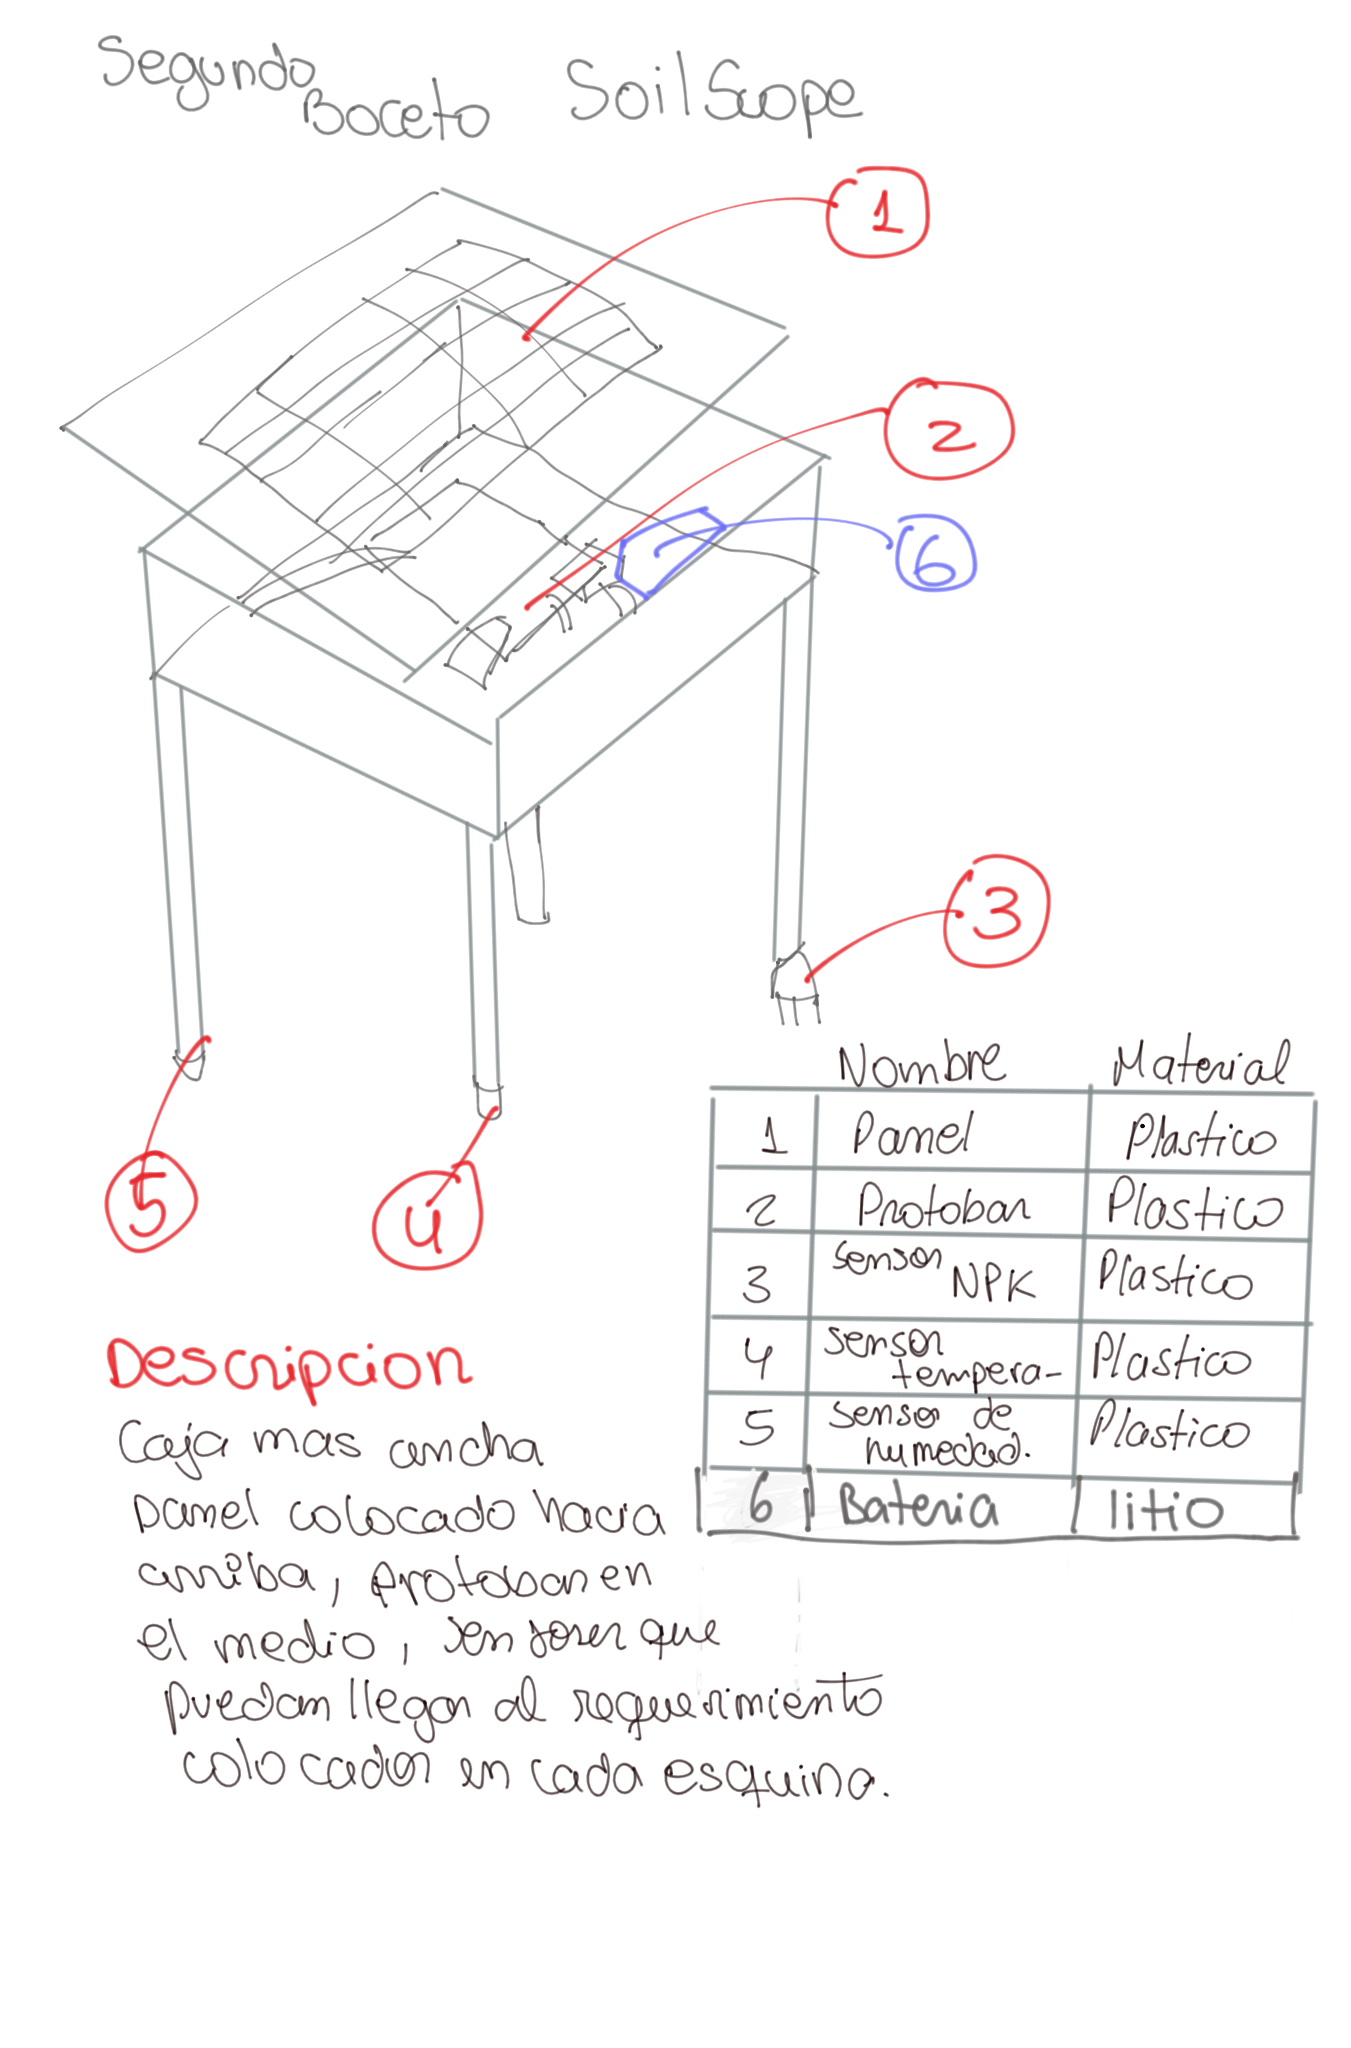 Segundo
Boceto
SoilScope
1
2
6
3
5
4
Nombre Material
1 Panel Plastico
2 Protobar Plastico
3 sensor NPK Plastico
4 sensor tempera- Plastico
5 sensor de humedad. Plastico
6 Bateria litio
Descripcion
Caja mas ancha
panel colocado hacia
arriba, protobar en
el medio, sensores que
puedan llegar al requerimiento
colocados en cada esquina.